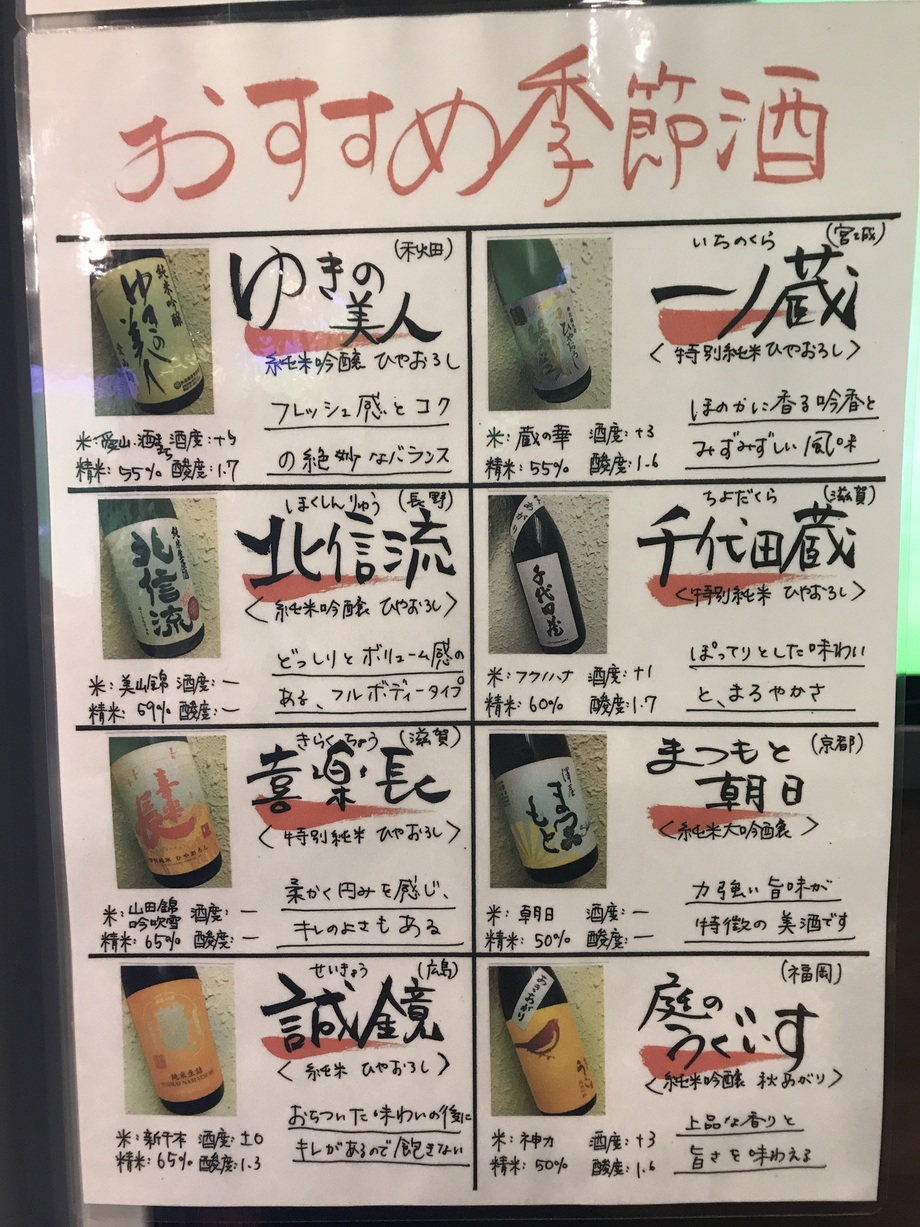 おすすめ季節酒
(秋田)
ゆきの
美人
純米吟醸 ひやおろし
フレッシュ感とコク
の絶妙なバランス
純米吟醸
ゆきの美人
米:愛山・酒こまち 酒度:+9
精米:55% 酸度:1.7
いちのくら (宮城)
一ノ蔵
〈特別純米ひやおろし〉
ほのかに香る吟香と
みずみずしい風味
ひやおろし
米:蔵の華 酒度:+3
精米:55% 酸度:1.6
ほくしんりゅう (長野)
北信流
〈純米吟醸 ひやおろし〉
どっしりとボリューム感の
ある、フルボディータイプ
北信流
米:美山錦 酒度:ー
精米:59% 酸度:ー
ちよだくら (滋賀)
千代田蔵
〈特別純米 ひやおろし〉
ぽってりとした味わい
と、まろやかさ
千代田蔵
米:フクノハナ 酒度:+1
精米:60% 酸度:1.7
きらくちょう (滋賀)
喜楽長
〈特別純米 ひやおろし〉
柔かく円みを感じ、
キレのよさもある
喜楽長
特別純米 ひやおろし
米:山田錦
吟吹雪 酒度:ー
精米:65% 酸度:ー
まつもと (京都)
朝日
〈純米大吟醸〉
力強い旨味が
特徴の美酒です
澤屋
まつもと
米:朝日 酒度:ー
精米:50% 酸度:ー
せいきょう (広島)
誠鏡
〈純米 ひやおろし〉
おちついた味わいの後に
キレがあるので飽きない
純米生詰
米:新千本 酒度:±0
精米:65% 酸度:1.3
(福岡)
庭の
うぐいす
〈純米吟醸 秋あがり〉
上品な香りと
旨さを味わえる
米:神力 酒度:+3
精米:50% 酸度:1.6